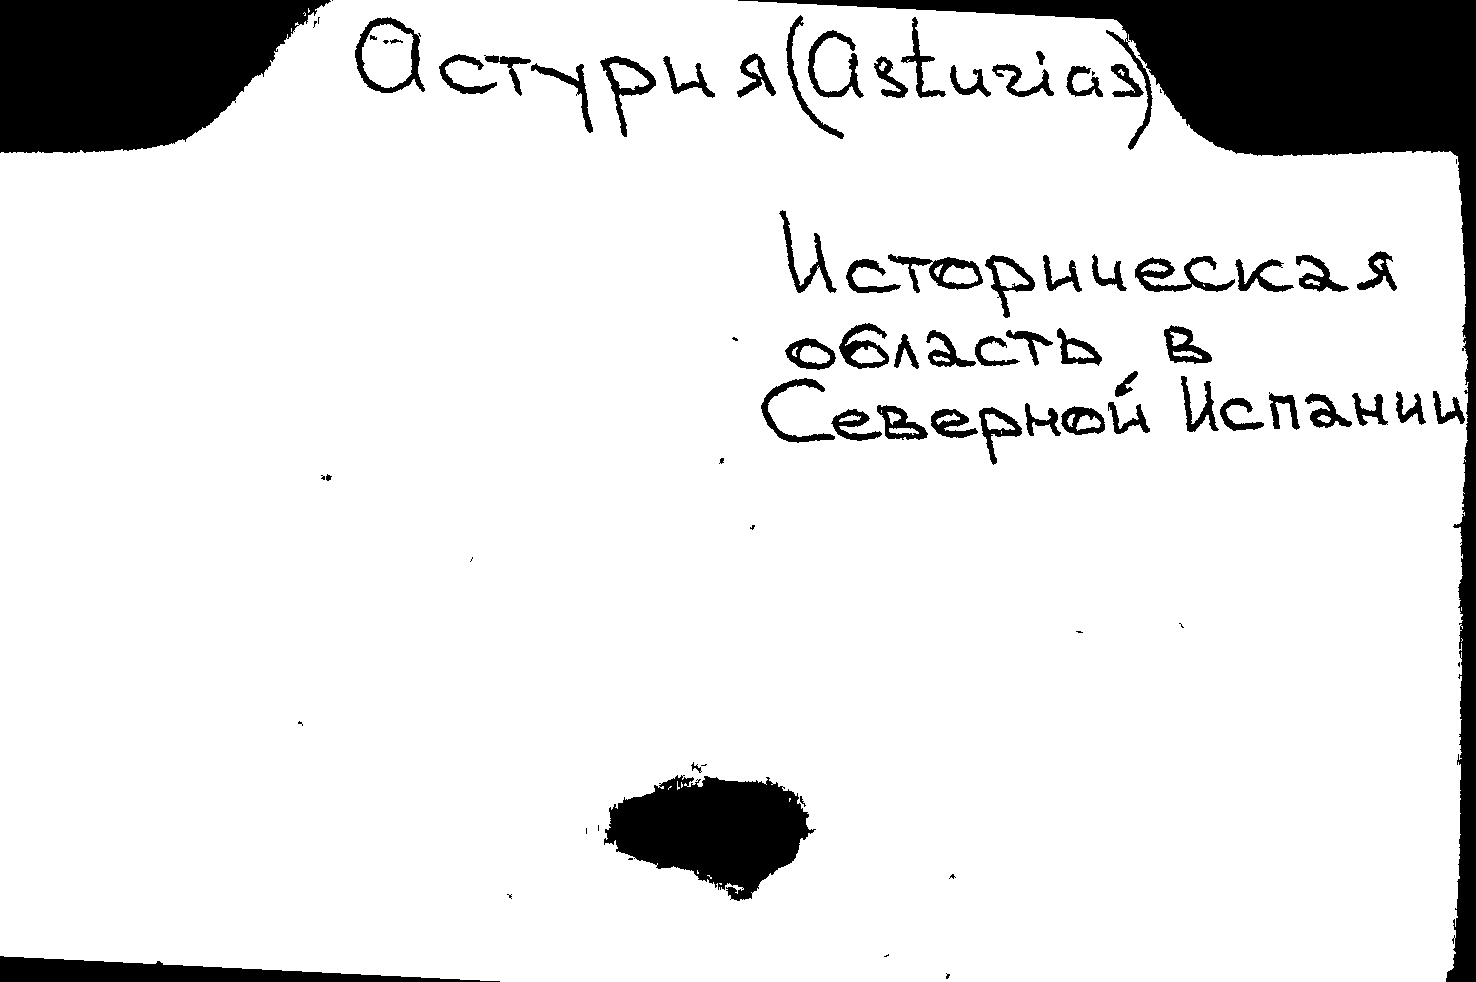 Астурия (Asturias)
Историческая
область в
Северной Испании